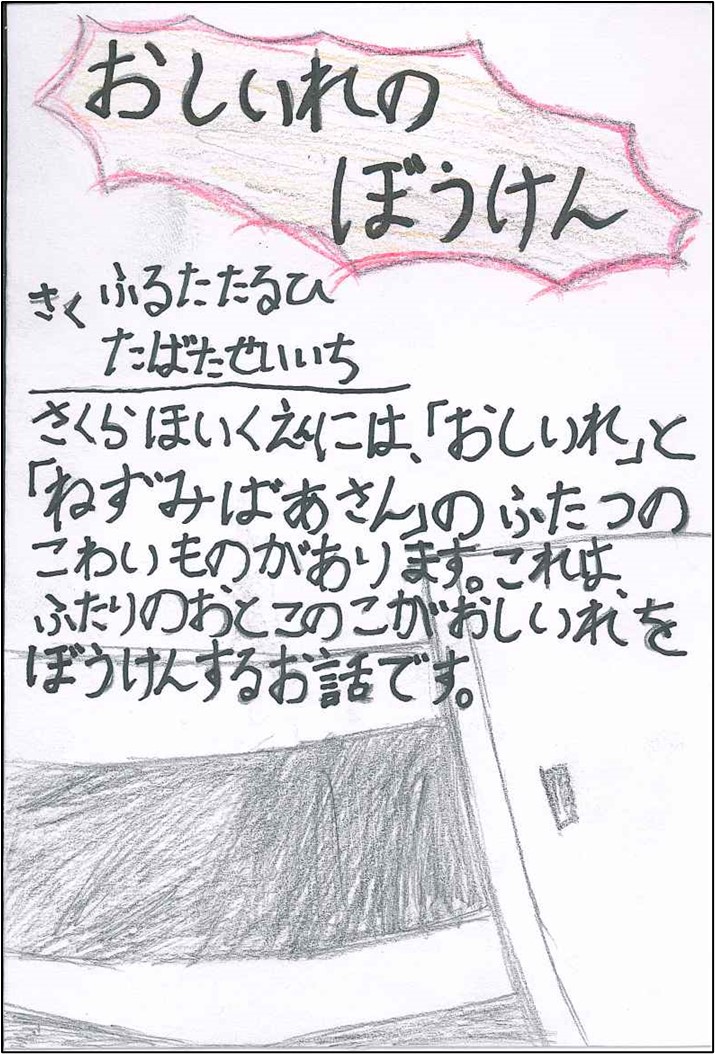 おしいれの
ぼうけん
さく ふるたたるひ
たばたせいいち
さくらほいくえんには、「おしいれ」と
「ねずみばあさん」のふたつの
こわいものがあります。これは、
ふたりのおとこのこがおしいれを
ぼうけんするお話です。